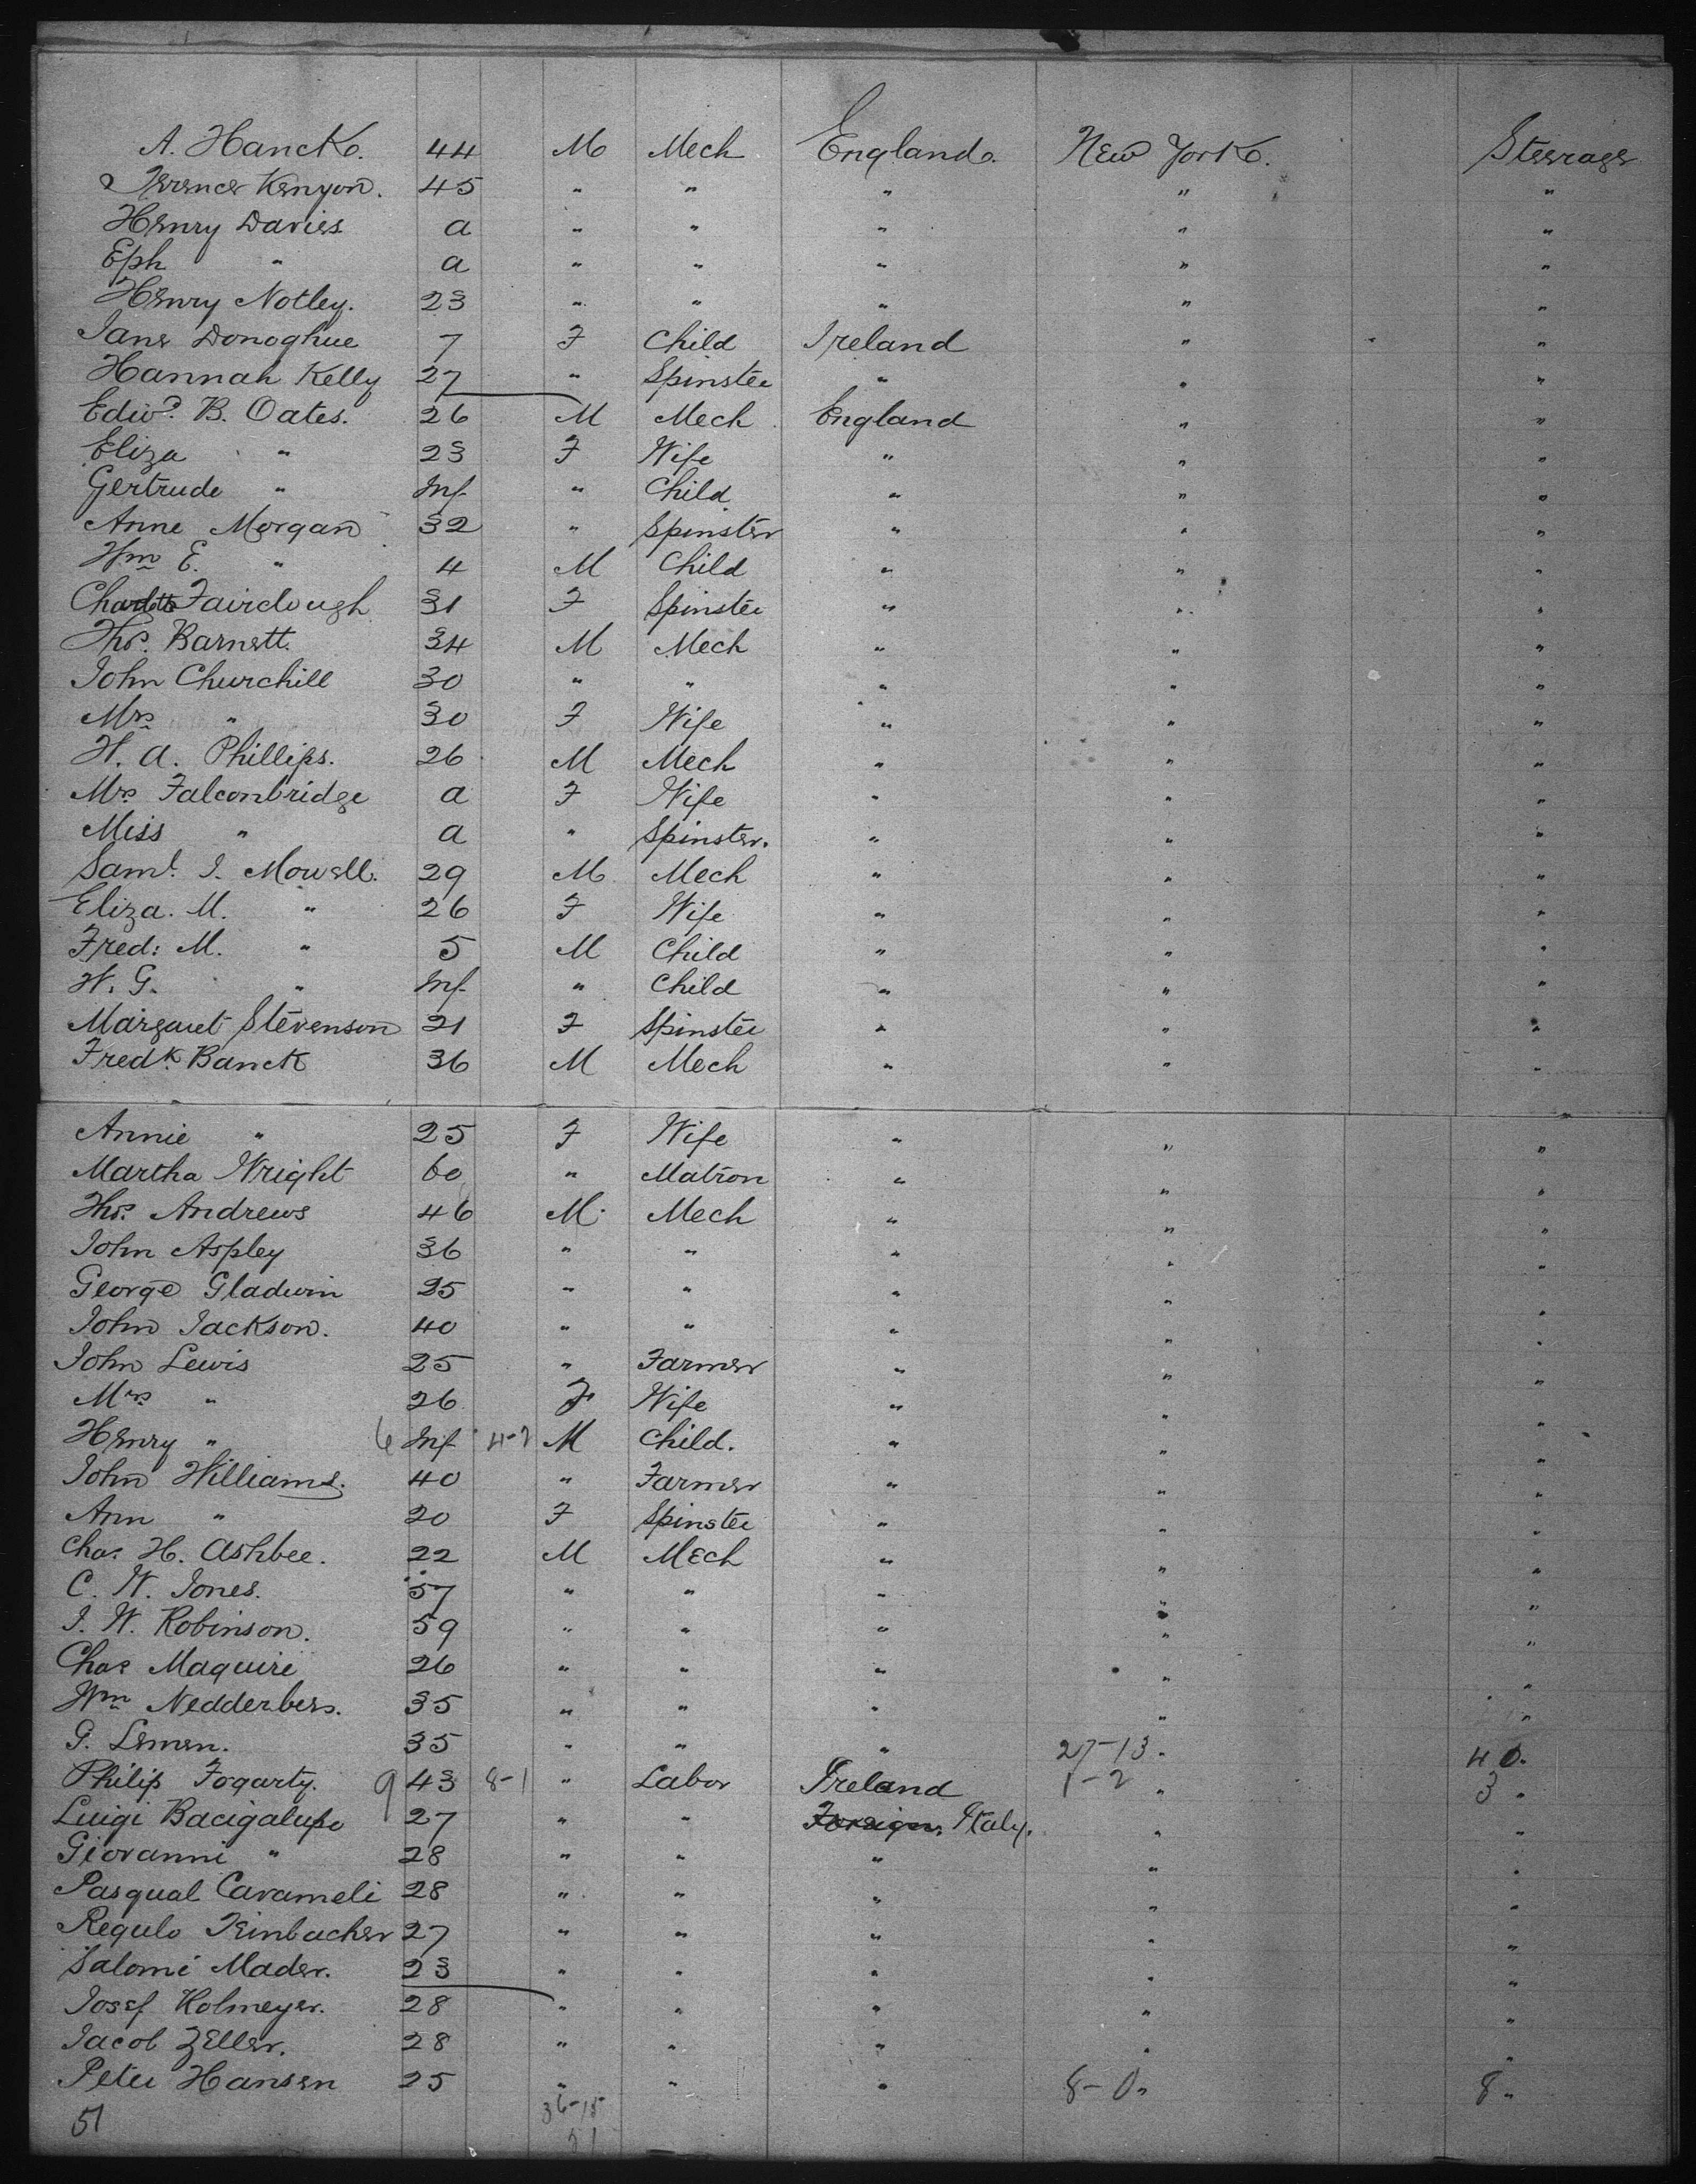 A. Hanck. 44 M Mech England. New York. Steerage
Terence Kenyon. 45 " " " " "
Henry Davies a " " " " "
Eph " a " " " " "
Henry Notley. 23 " " " " "
Jane Donoghue 7 F Child Ireland " "
Hannah Kelly 27 " Spinster " " "
Edwd. B. Oates. 26 M Mech England " "
Eliza " 23 F Wife " " "
Gertrude " Inf " Child " " "
Anne Morgan 32 " Spinster " " "
Wm E. " 4 M Child " " "
Charlotte Fairclough 31 F Spinster " " "
Thos. Barnett. 34 M Mech " " "
John Churchill 30 " " " " "
Mrs " 30 F Wife " " "
H. A. Phillips. 26 M Mech " " "
Mrs Falconbridge a F Wife " " "
Miss " a " Spinster. " " "
Saml. J. Mowell. 29 M Mech " " "
Eliza. M. " 26 F Wife " " "
Fred: M. " 5 M Child " " "
W. G. " Inf " Child " " "
Margaret Stevenson 21 F Spinster " " "
Fredk. Banck 36 M Mech " " "
Annie " 25 F Wife " " "
Martha Wright 60 " Matron " " "
Thos. Andrews 46 M. Mech " " "
John Aspley 36 " " " " "
George Gladwin 25 " " " " "
John Jackson. 40 " " " " "
John Lewis 25 " Farmer " " "
Mrs " 26 F Wife " " "
Henry " 6 Inf 4-2 M Child. " " "
John Williams. 40 " Farmer " " "
Ann " 20 F Spinster " " "
Chas. H. Ashbee. 22 M Mech " " "
C. W. Jones. 57 " " " " "
J. W. Robinson. 59 " " " " "
Chas Maguire 26 " " " " "
Wm Nedderbers. 35 " " " " "
G. Lemen. 35 " " " 27-13 " 40 "
Philip Fogarty. 9 43 8-1 " Labor Ireland 1-2 " 3 "
Luigi Bacigalupo 27 " " Foreign. Italy. " "
Giovanni " 28 " " " " "
Pasqual Carameli 28 " " " " "
Regulo Teinbacher 27 " " " " "
Salomi Mader. 23 " " " " "
Josef Kolmeyer. 28 " " " " "
Jacob Zeller. 28 " " " " "
Peter Hansen 25 " " " 8-0 " 8 "
51 36-15
51